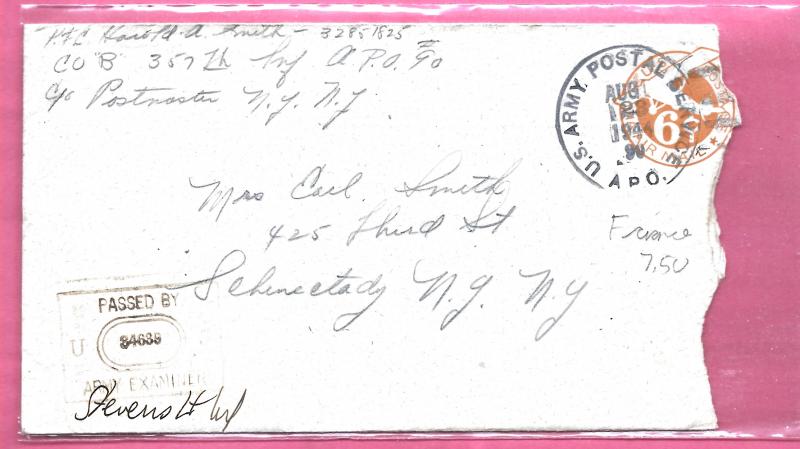 Pfc. Harold. A. Smith - 32851825
CO B 357 Th Inf A.P.O. 90
c/o Postmaster N.Y. N.Y
U.S. ARMY POSTAL SERVICE
AUG
28
1944
90
A.P.O.
6¢
AIR MAIL
Mrs Carl Smith
425 Third St
Schenectady N.Y. N.Y
France
7.50
PASSED BY
U
34635
ARMY EXAMINER